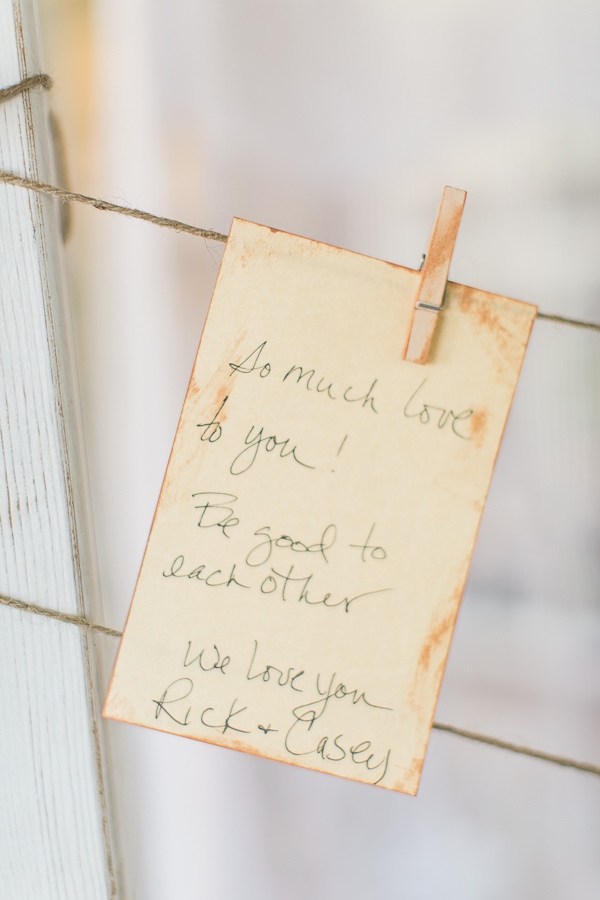 So much love
to you!
Be good to
each other
We love you
Rick + Casey